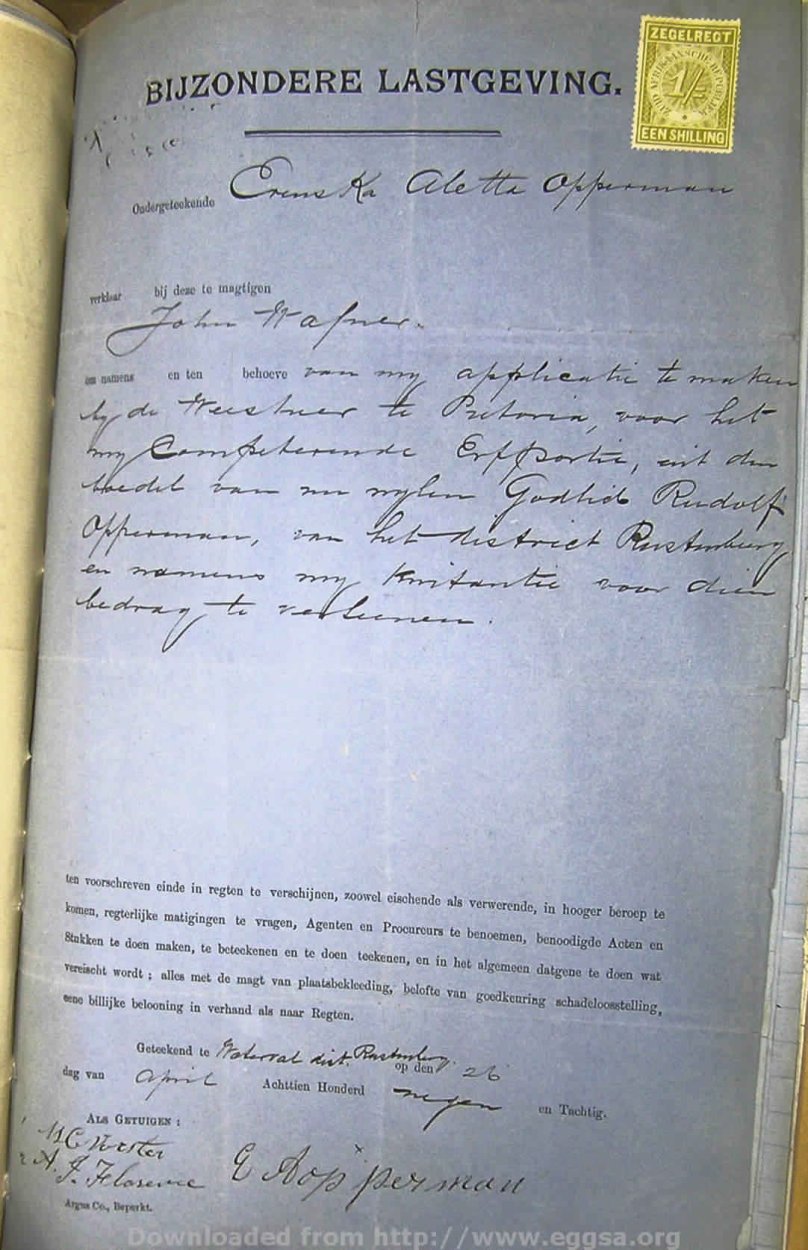 ZEGELREGT
ZUID AFRIKAANSCHE REPUBLIEK
1/-
EEN SHILLING
BIJZONDERE LASTGEVING.
Ondergeteekende Erenska Aletta Opperman
verklaar bij deze te magtigen
John Wafner.
om namens en ten behoeve van my applicatie te maken
by de Weesheer te Pretoria, voor het
my Competerende Erfportie, uit den
boedel van nu wylen Godlieb Rudolf
Opperman, van het district Rustenburg
en namens my Kwitantie voor dien
bedrag te verleenen.
ten voorschreven einde in regten te verschijnen, zoowel eischende als verwerende, in hooger beroep te
komen, regterlijke matigingen te vragen, Agenten en Procureurs te benoemen, benoodigde Acten en
Stukken te doen maken, te beteekenen en te doen teekenen, en in het algemeen datgene te doen wat
vereischt wordt ; alles met de magt van plaatsbekleeding, belofte van goedkeuring schadeloosstelling,
eene billijke belooning in verband als naar Regten.
Geteekend te Waterval dist. Rustenburg. op den 26
dag van April Achttien Honderd negen en Tachtig.
ALS GETUIGEN :
1 Vorster
2 A. J. Florence
E A Opperman
Argus Co., Beperkt.
Downloaded from http://www.eggsa.org